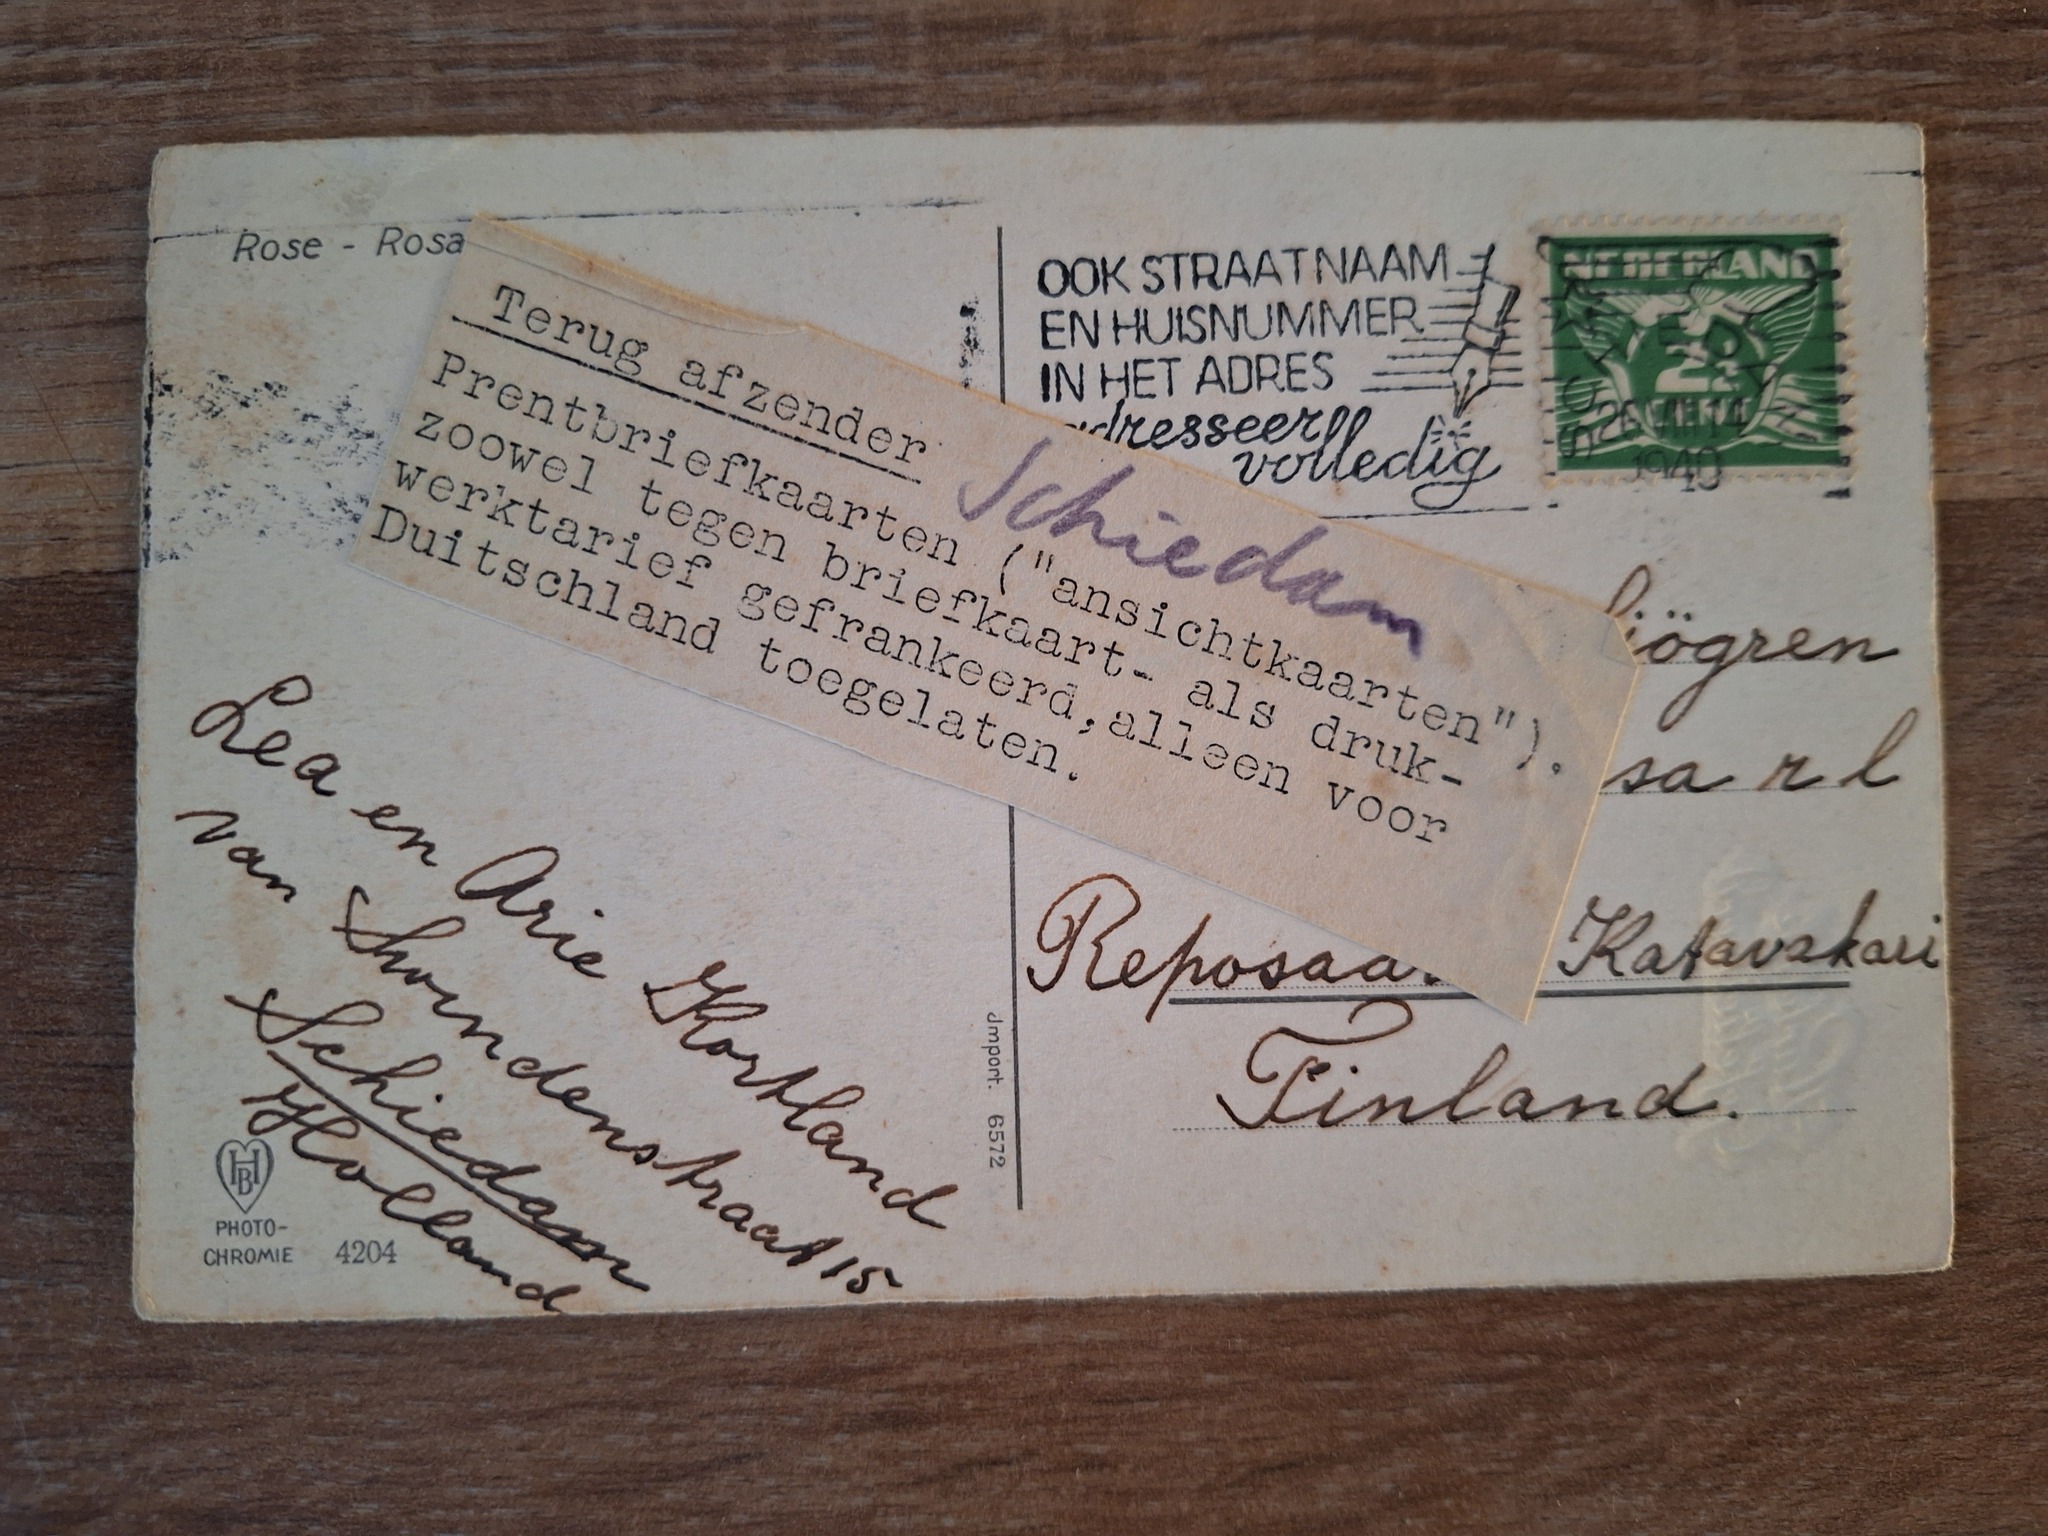 Rose - Rosa
Terug afzender
Schiedam
Prentbriefkaarten ("ansichtkaarten").
zoowel tegen briefkaart- als druk-
werktarief gefrankeerd, alleen voor
Duitschland toegelaten.
OOK STRAATNAAM
EN HUISNUMMER
IN HET ADRES
adresseer
volledig
NEDERLAND
2½
SCHIEDAM
26 VIII 14
1940
jögren
sa r l
Reposaa Katavakari
Finland.
Lea en Arie Kortland
van Smoindenstraat 15
Schiedam
Holland
Jmport. 6572
HB
PHOTO-
CHROMIE 4204